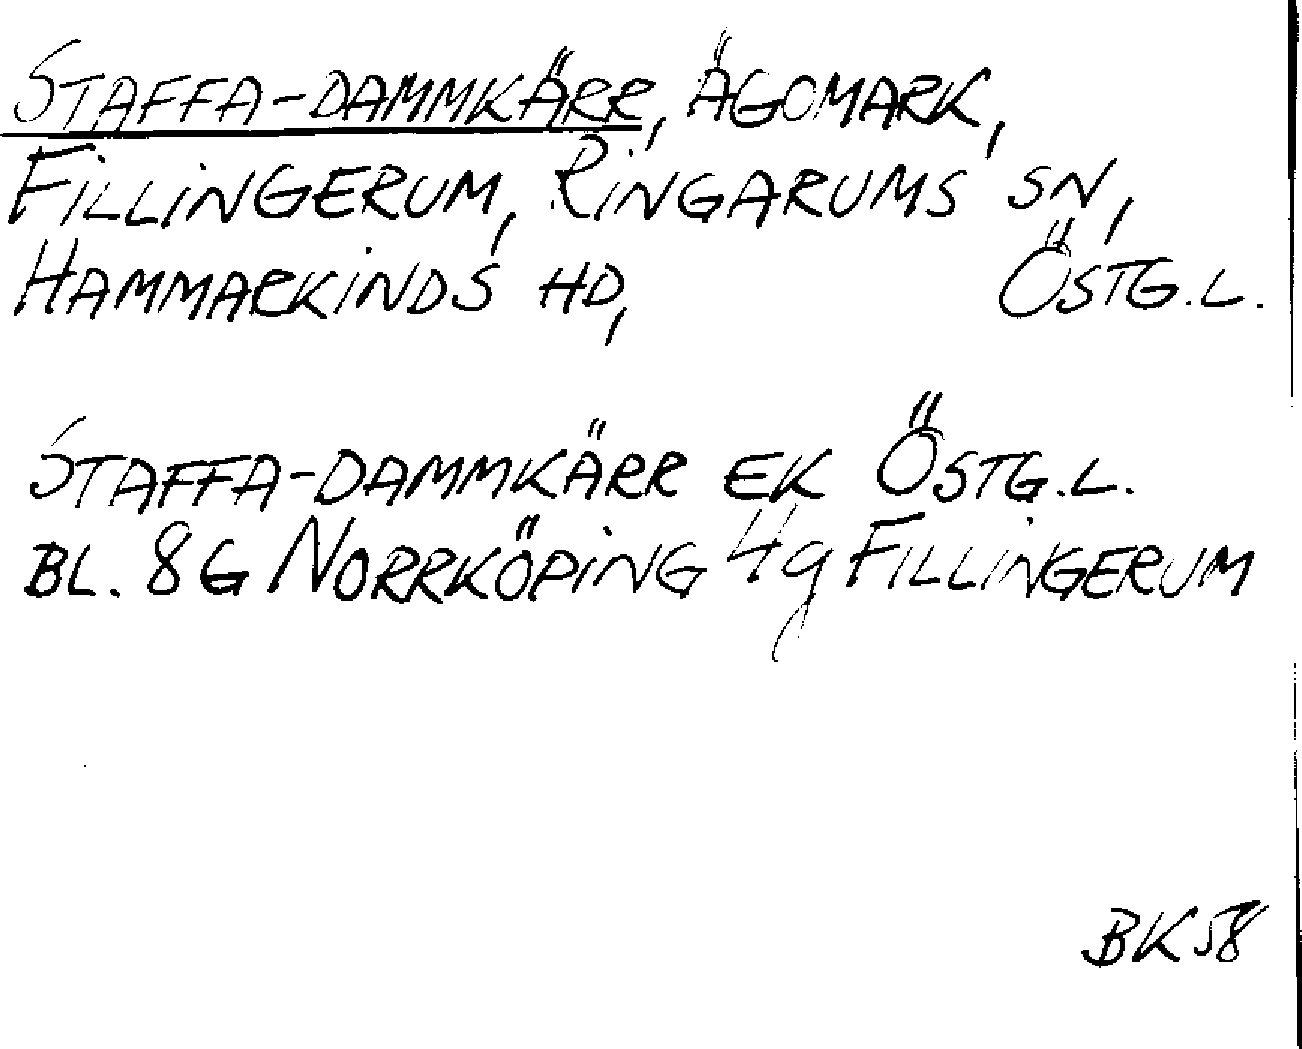 STAFFA-DAMMKÄRR, ÄGOMARK,
FILLINGERUM, RINGARUMS SN,
HAMMARKINDS HD, ÖSTG.L.
STAFFA-DAMMKÄRR EK ÖSTG.L.
BL. 8G NORRKÖPING 4g FILLINGERUM
BK58